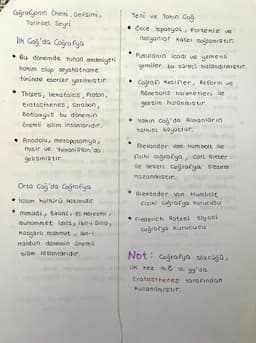 Coğrafyanın Önemi, Gelişimi,
Tarihsel Seyri
İlk Çağ'da Coğrafya
• Bu dönemde Yunan medeniyeti
hakim olup seyahatname
türünde eserler yazılmıştır.
• Thales, Hekataios, Platon,
Eratosthenes, Strabon,
Batlamyus bu dönemin
önemli bilim insanlarıdır.
• Anadolu, Mezopotamya,
Mısır ve Yunanistan'da
gelişmiştir.
Orta Çağ'da Coğrafya
• İslam kültürü hakimdir.
• Mesudi, Biruni, El Harezmi,
Muhammet İdrisi, İbn-i Sina,
Kaşgarlı Mahmut, İbn-i
Haldun dönemin önemli
bilim insanlarıdır.
Yeni ve Yakın Çağ
• Önce İspanyol, Portekiz ve
İtalyanlar katkı sağlamıştır.
• Pusulanın icadı ve yelkenli
gemiler bu süreci hızlandırmıştır.
• Coğrafi keşifler, Reform ve
Rönesans hareketleri ile
gelişim hızlanmıştır.
• Yakın Çağ'da Almanların
katkısı büyüktür.
• Alexander von Humbolt ile
fiziki coğrafya, Carl Ritter
ile beşeri coğrafya sistem
kazanmıştır.
• Alexander von Humbolt
fiziki coğrafya kurucusu
• Friderich Ratzel siyasi
coğrafya kurucusu
Not: Coğrafya sözcüğü,
ilk kez M.Ö yy'da
Eratosthenes tarafından
kullanılmıştır.